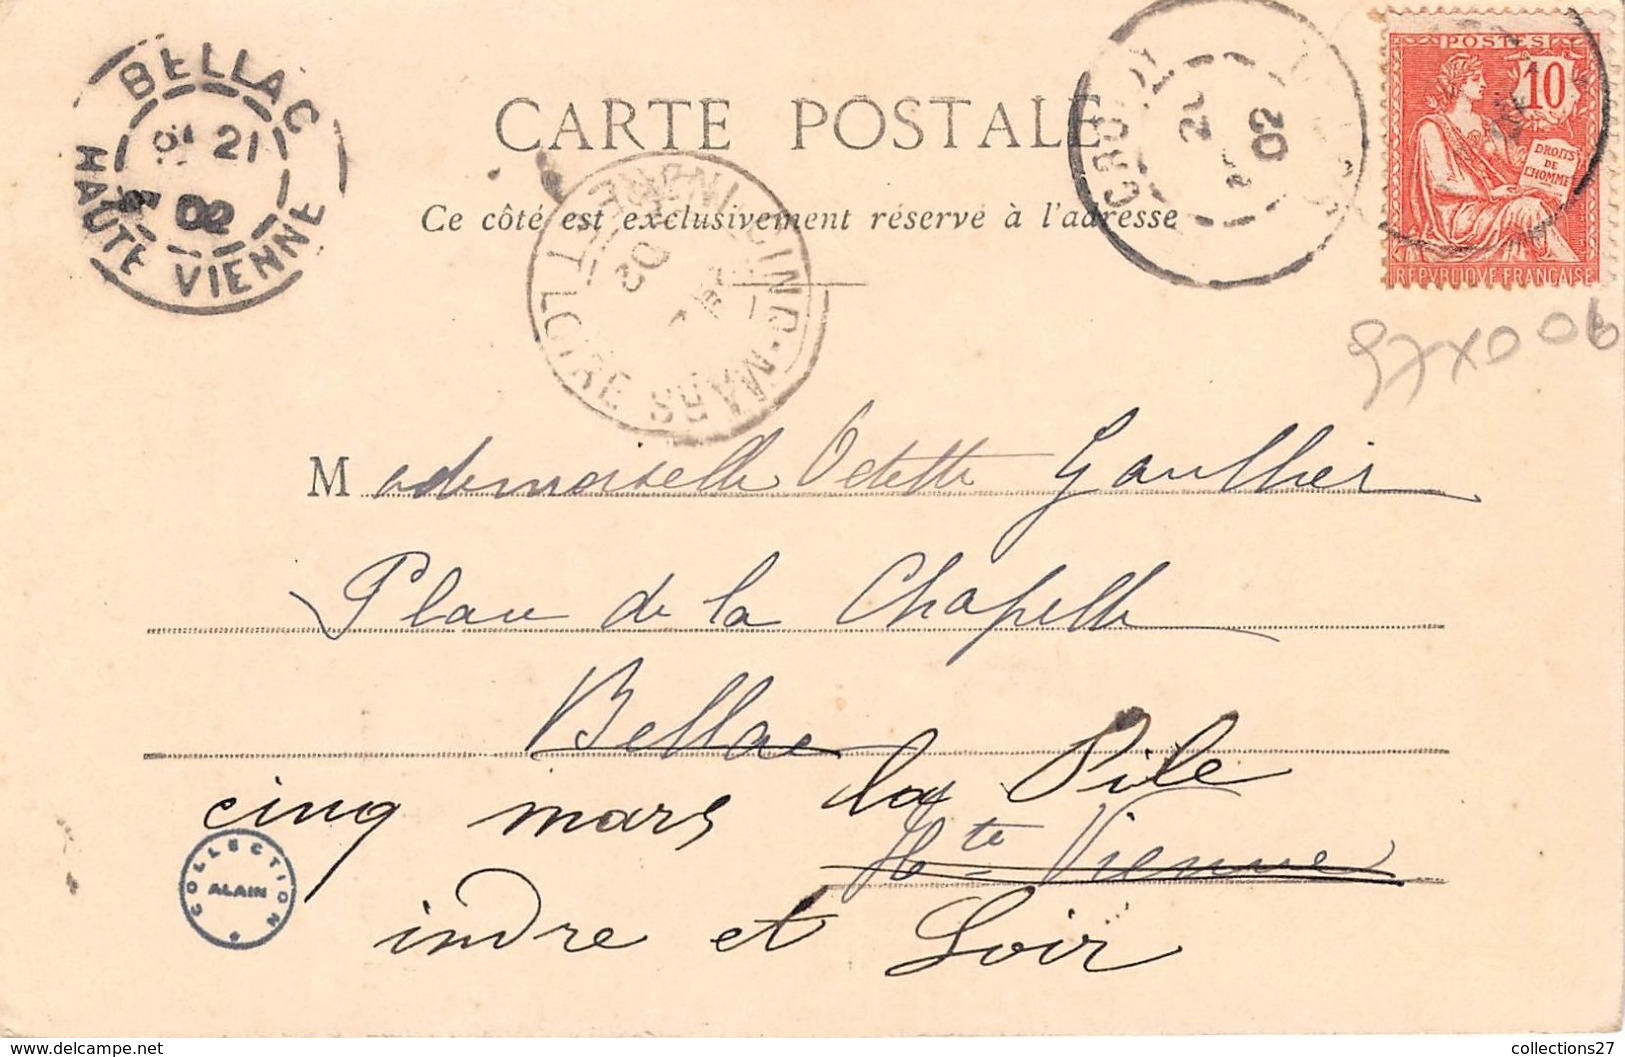 BELLAC
21
02
HAUTE VIENNE
CARTE POSTALE
Ce côté est exclusivement réservé à l'adresse
CINQ-MARS
INDRE ET LOIRE
02
02
POSTES
10
DROITS
DE
L'HOMME
REPVBLIQVE FRANÇAISE
Mademoiselle Odette Gaullier
Place de la Chapelle
Bellac
cinq mars la Pile
Hte Vienne
indre et Loir
COLLECTION
ALAIN
collections27